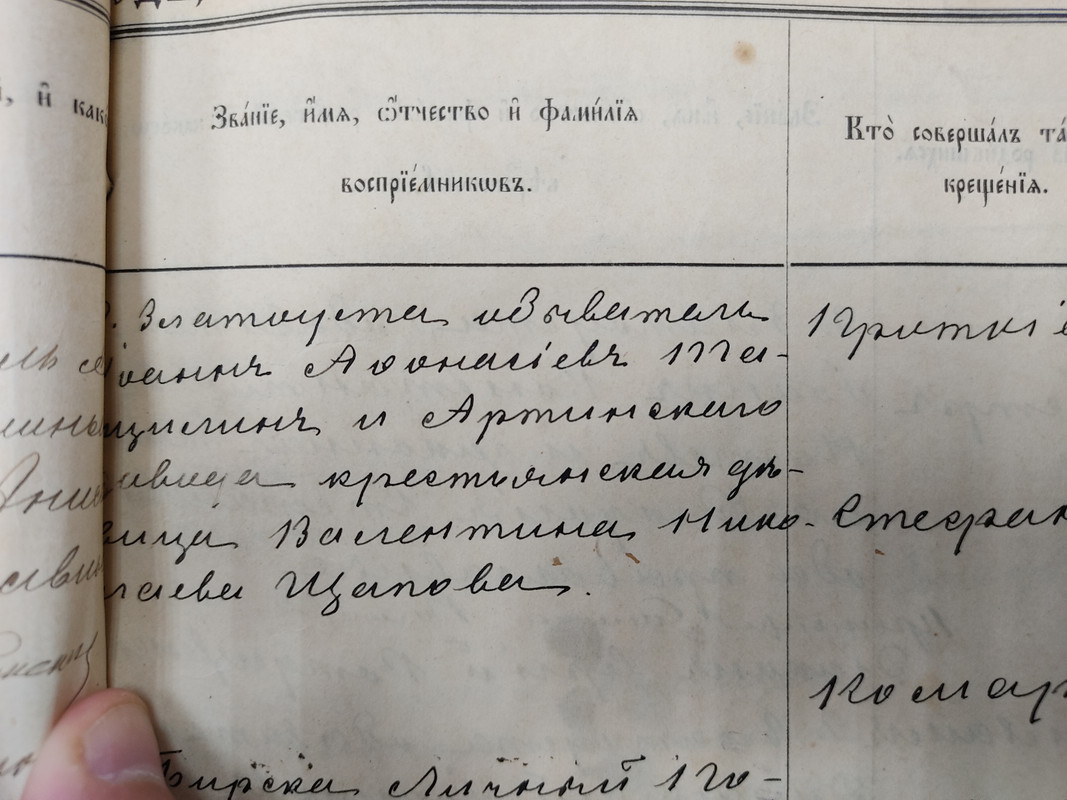 й, и҆ как
Зва́нїе, и҆́мя, ѻ҆́тчество и҆ фами́лїѧ
воспрїе́мникѡвъ.
Кто̀ соверша́лъ та́
креще́нїѧ.
Златоуста обыватель
Іоаннъ Аѳонасіевъ Та-
щилинъ и Артинскаго
завода крестьянская дѣ-
вица Валентина Нико-
лаева Щапова.
Кроткі
Стефан
Комар
Бирска Личный По-